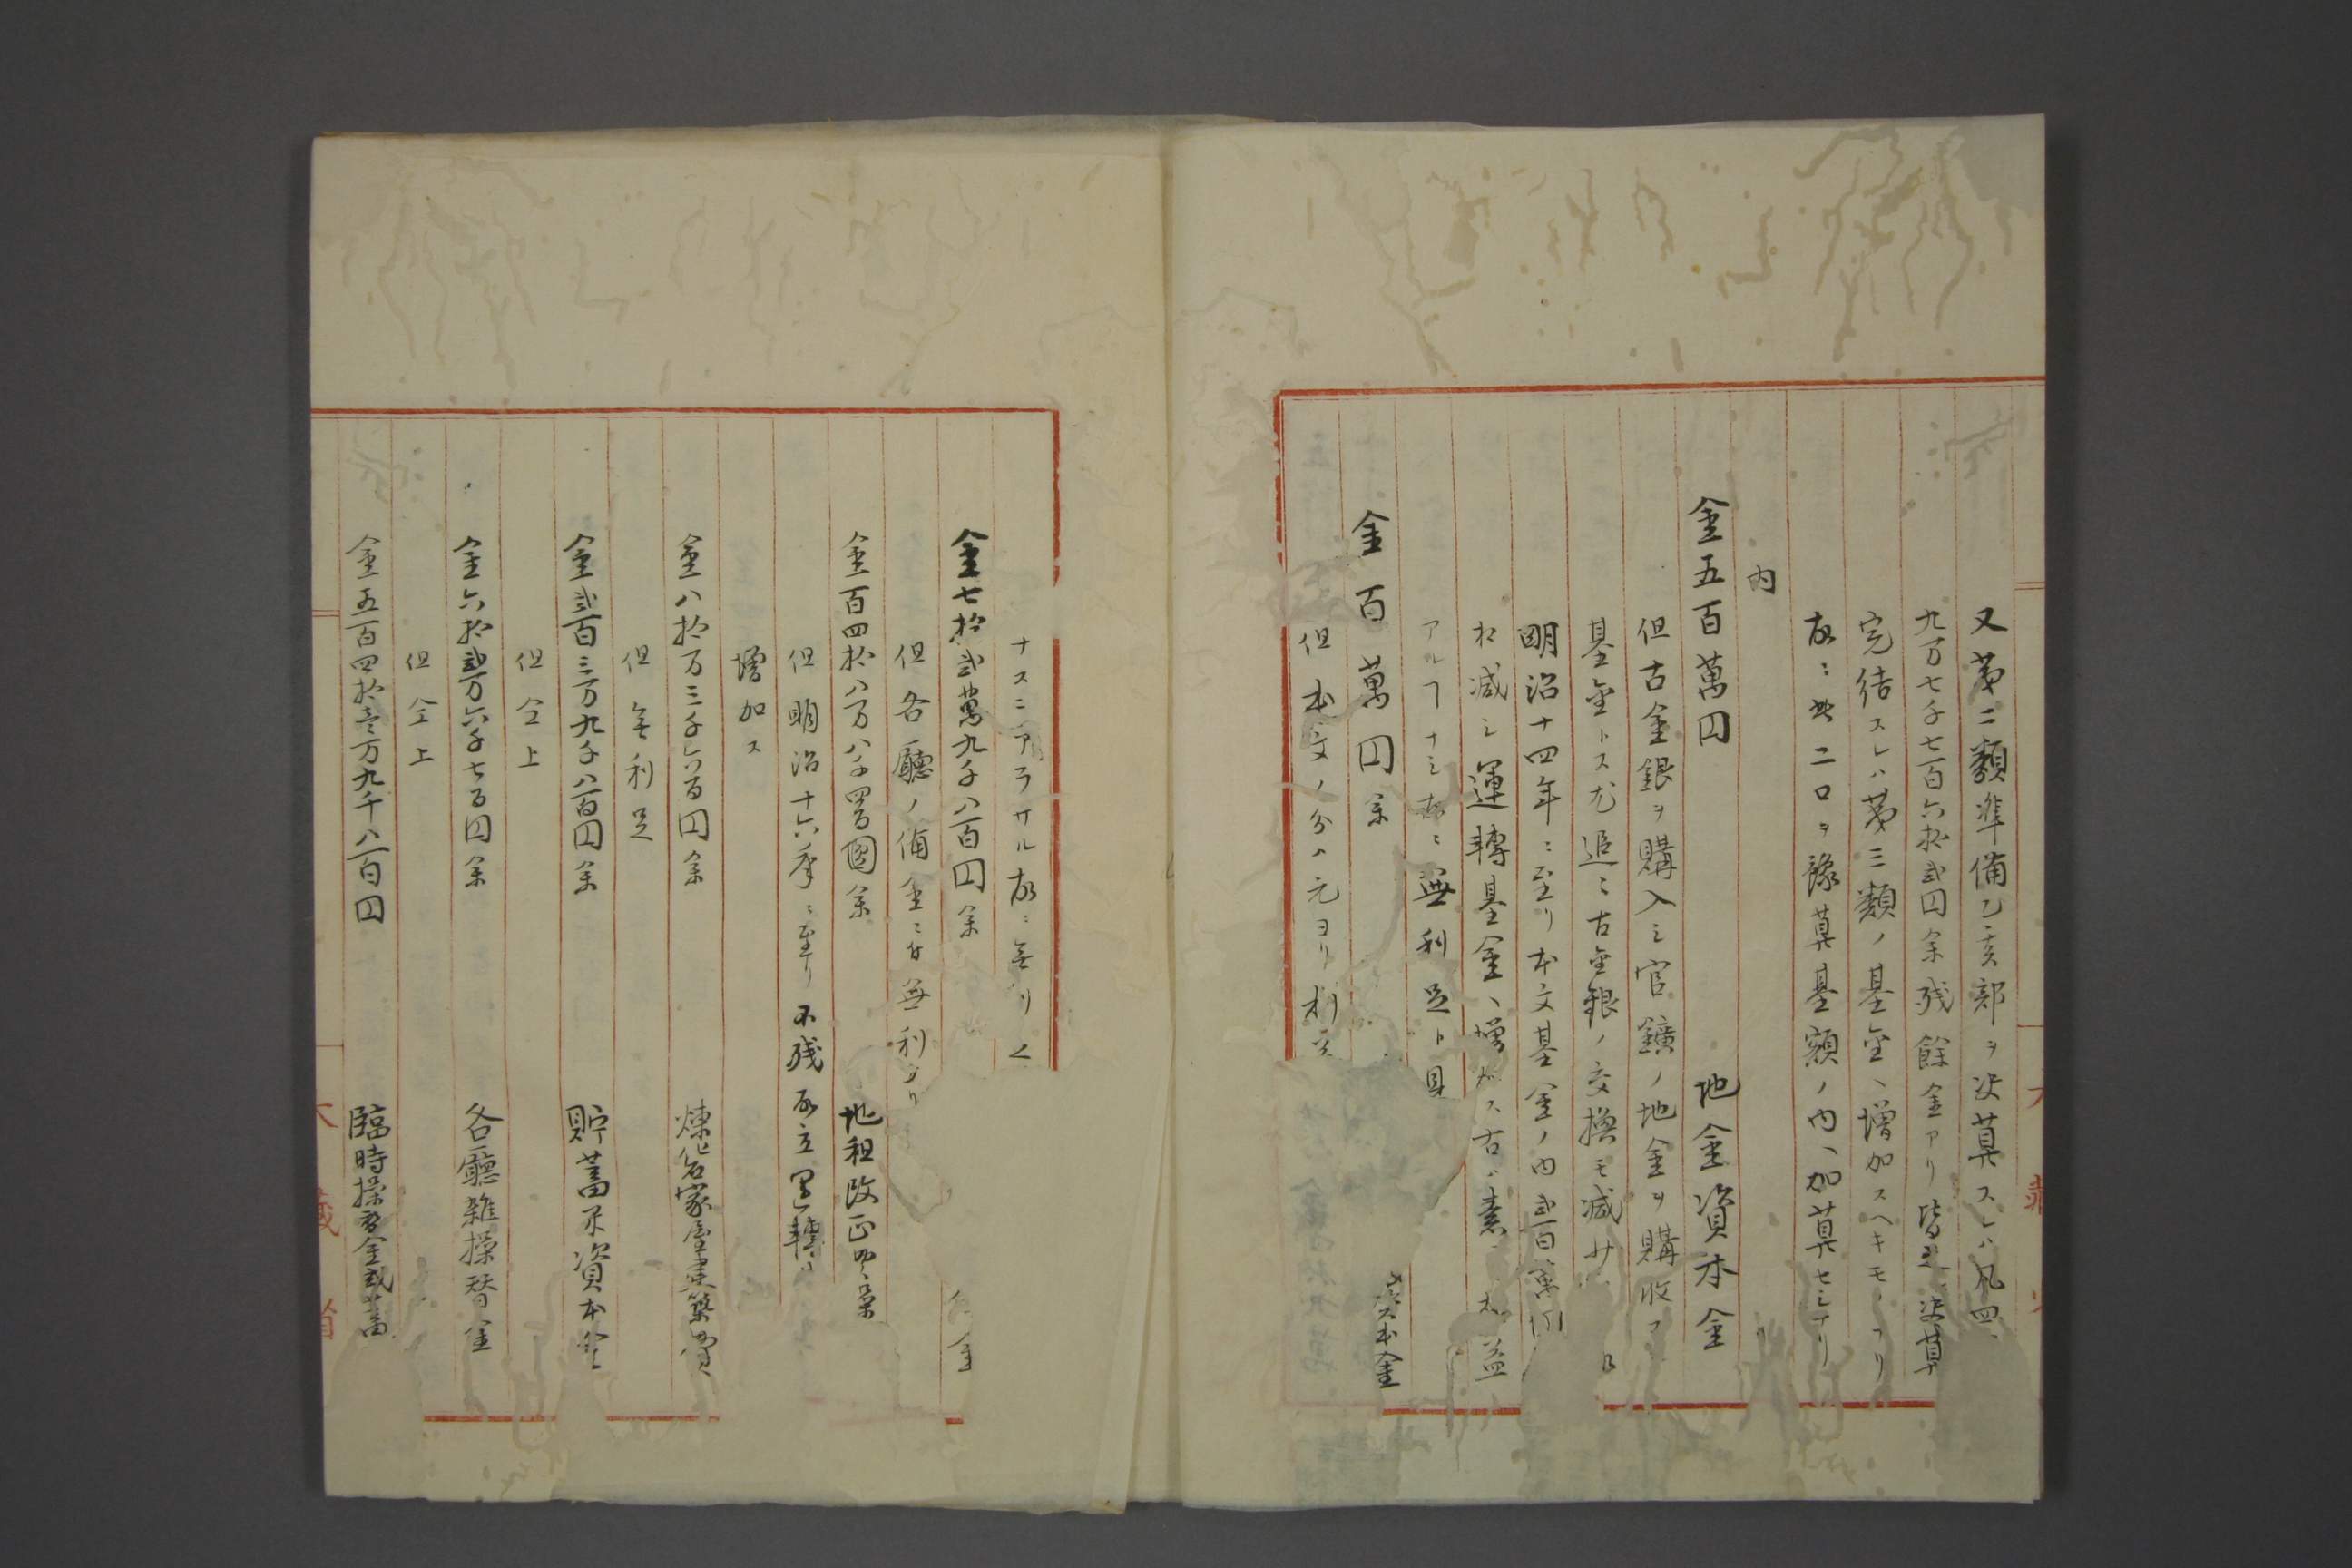 又第二類準備乙亥部ヲ决算スレハ凡四
九万七千七百六拾弐円余残餘金アリ皆决算
完結スレハ第三類ノ基金、増加スヘキモノナリ
故ニ此二口ヲ豫算基額ノ内ヘ加算セシナリ
内
金五百萬円 地金資本金
但古金銀ヲ購入シ官鑛ノ地金ヲ購收ス
基金トス尤追々古金銀ノ交換モ減サ
明治十四年ニ至リ本文基金ノ内弐百萬円
ヲ減シ運轉基金ヘ増加ス古ハ素ヨリ益
アルヿナシ故ニ無利足ト見
金百萬円余 本金
但本文ノ分ハ元ヨリ利足
ナスニアラサル故ニ無リ
金七拾弐萬九千八百円余 金
但各廳ノ備金ニ付無利ナリ
金百四拾八万八千四百圓余 地租改正
但明治十六年ニ至リ不残取立運轉
増加ス
金八拾万三千六百円余 煉化石家屋建築費
但無利足
金弐百三万九千八百円余 貯蓄米資本金
但仝上
金六拾弐万六千七百円余 各廳雑操替金
但仝上
金五百四拾壱万九千八百円 臨時操替金貳蓄
大藏省